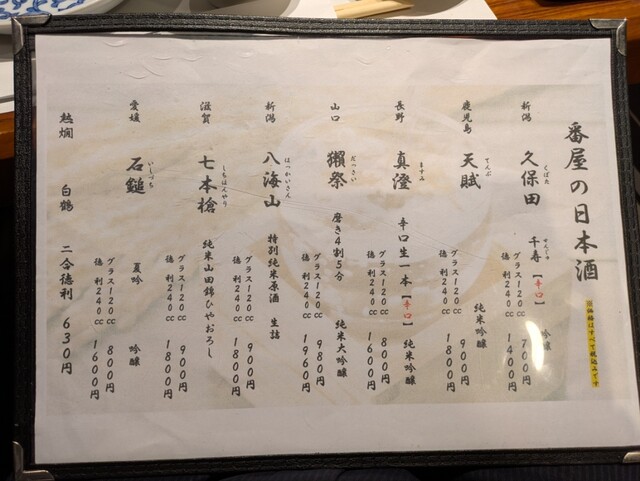 番屋の日本酒
※価格はすべて税込みです
新潟 久保田 千寿 【辛口】 吟醸
くぼた せんじゅ
グラス120cc 700円
徳利240cc 1400円
鹿児島 天賦 純米吟醸
てんぶ
グラス120cc 900円
徳利240cc 1800円
長野 真澄 辛口生一本 【辛口】 純米吟醸
ますみ
グラス120cc 800円
徳利240cc 1600円
山口 獺祭 磨き4割5分 純米大吟醸
だっさい
グラス120cc 980円
徳利240cc 1960円
新潟 八海山 特別純米原酒 生詰
はっかいさん
グラス120cc 900円
徳利240cc 1800円
滋賀 七本槍 純米山田錦ひやおろし
しちほんやり
グラス120cc 900円
徳利240cc 1800円
愛媛 石鎚 夏吟 吟醸
いしづち
グラス120cc 800円
徳利240cc 1600円
熱燗 白鶴 二合徳利 630円